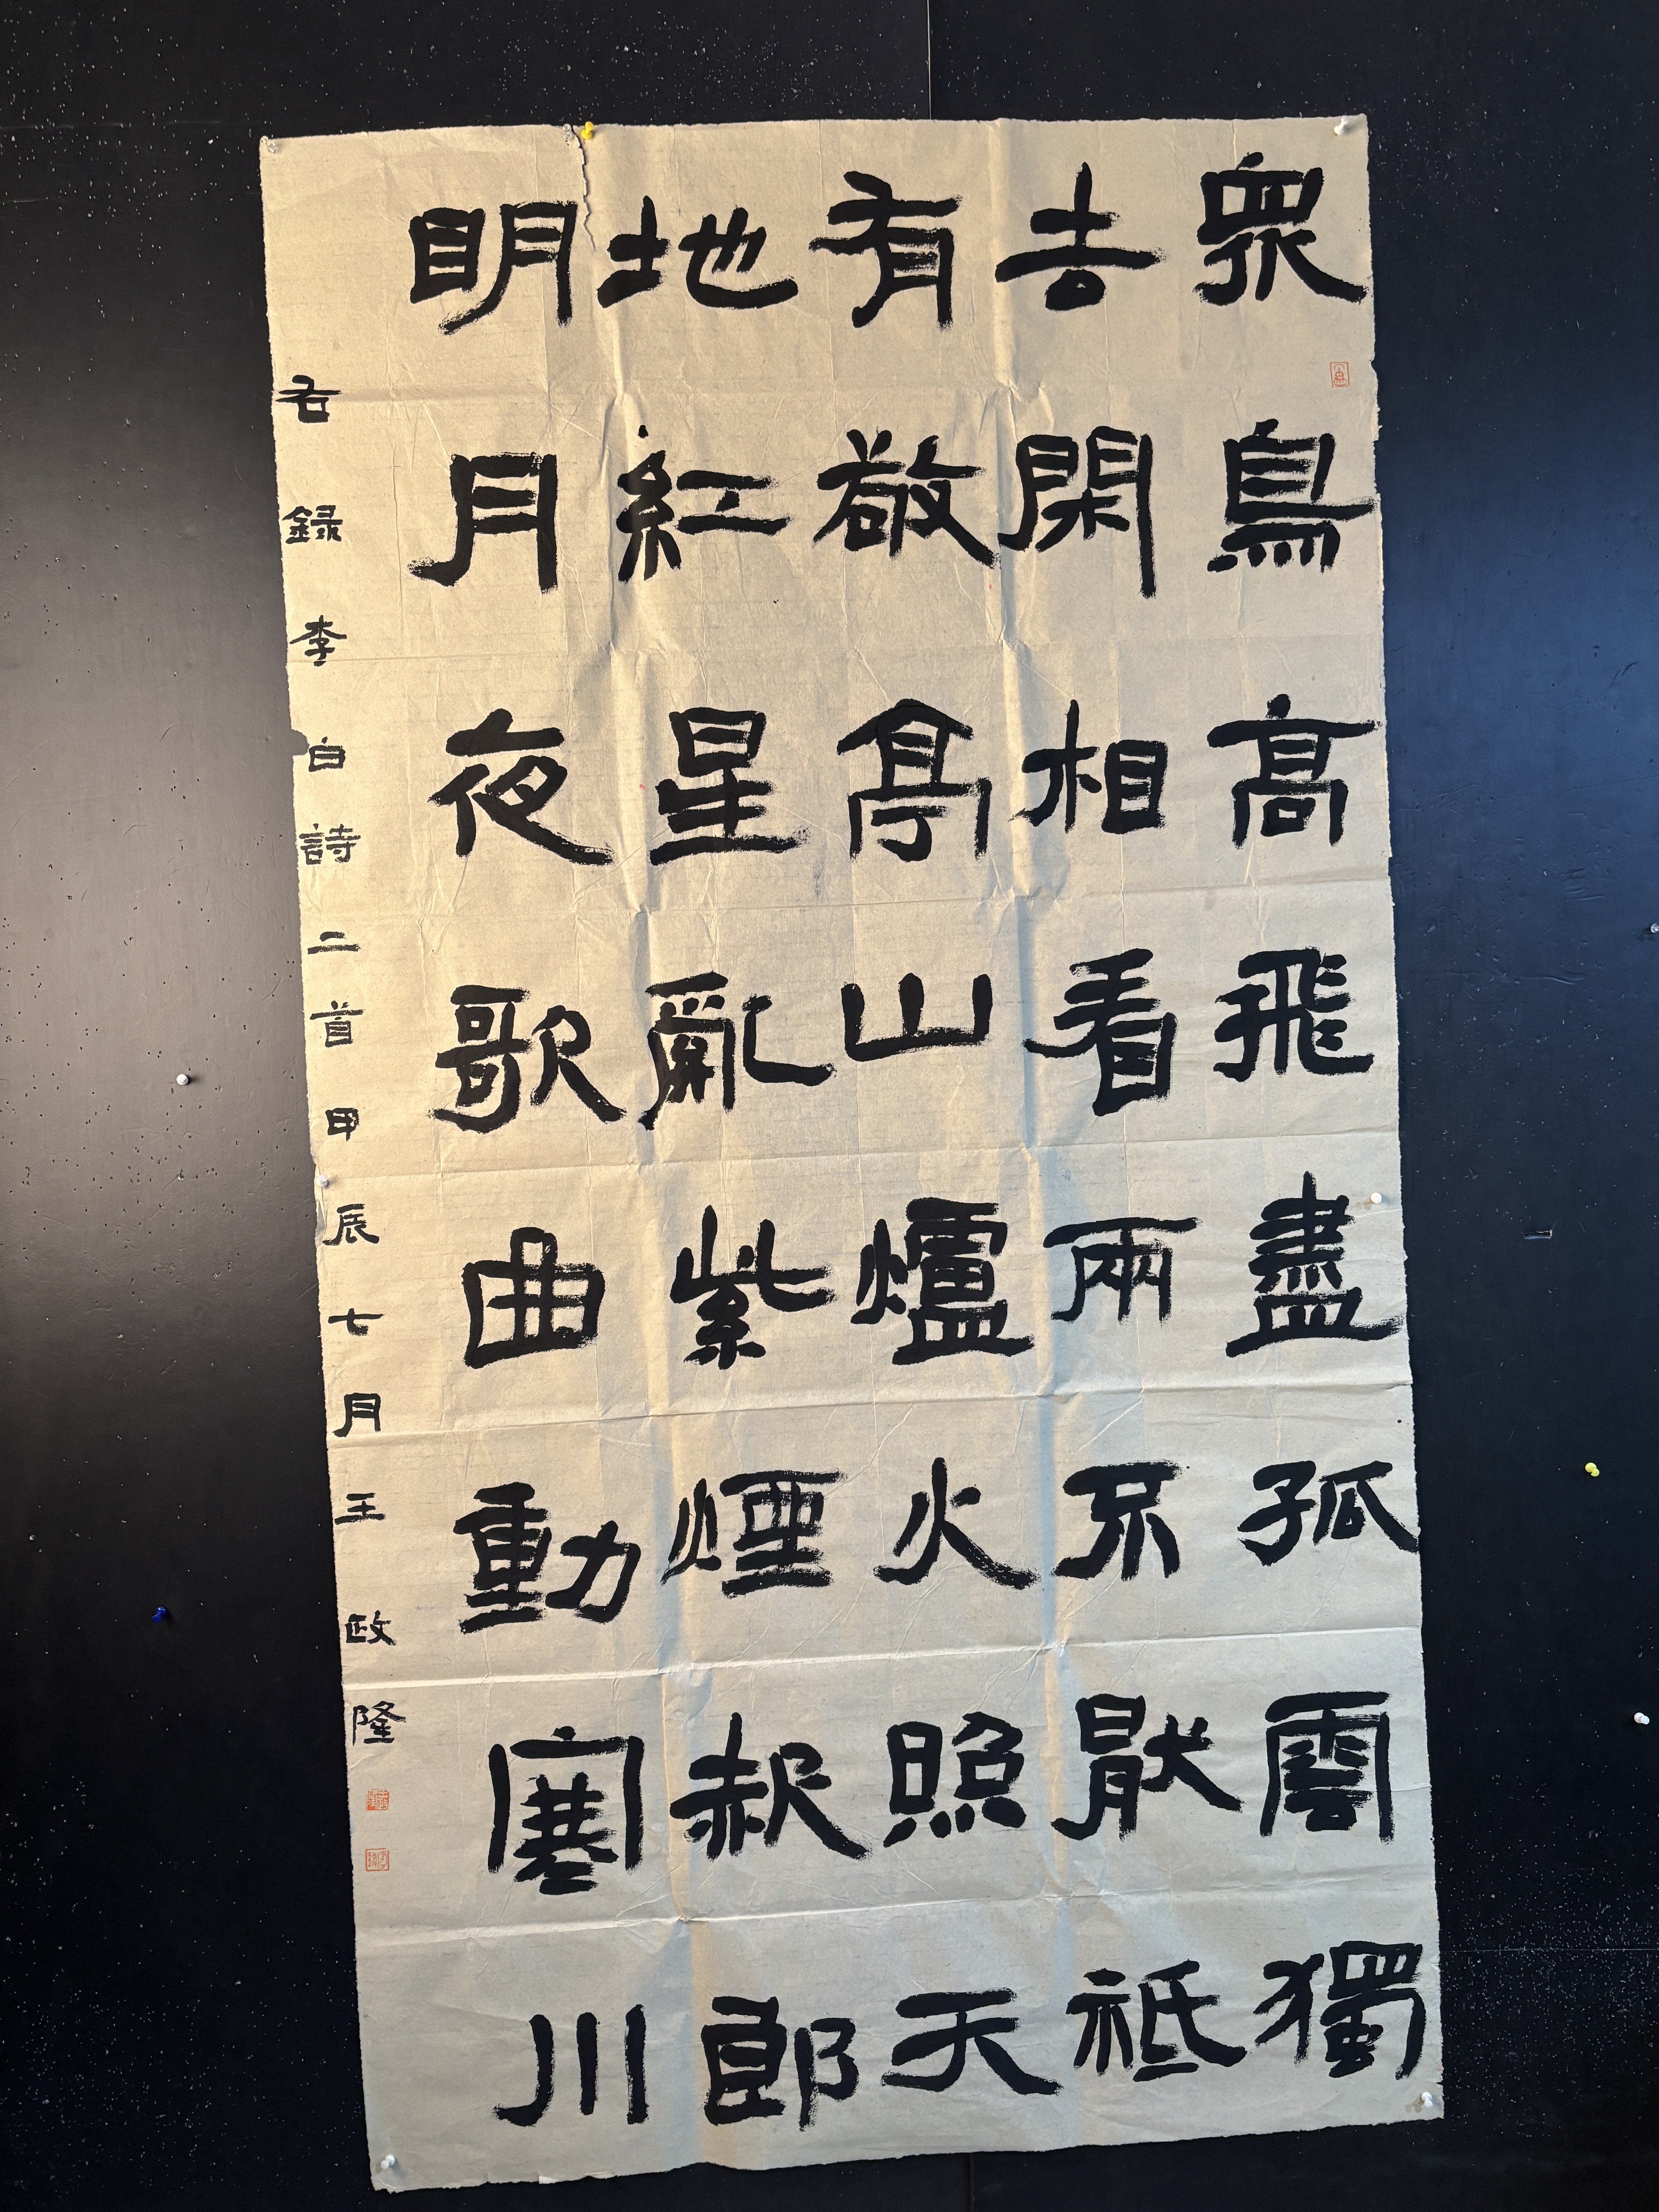 眾鳥高飛盡孤雲獨
去閑相看兩不厭祗
有敬亭山爐火照天
地紅星亂紫煙赧郎
明月夜歌曲動寒川
右錄李白詩二首甲辰七月王政隆